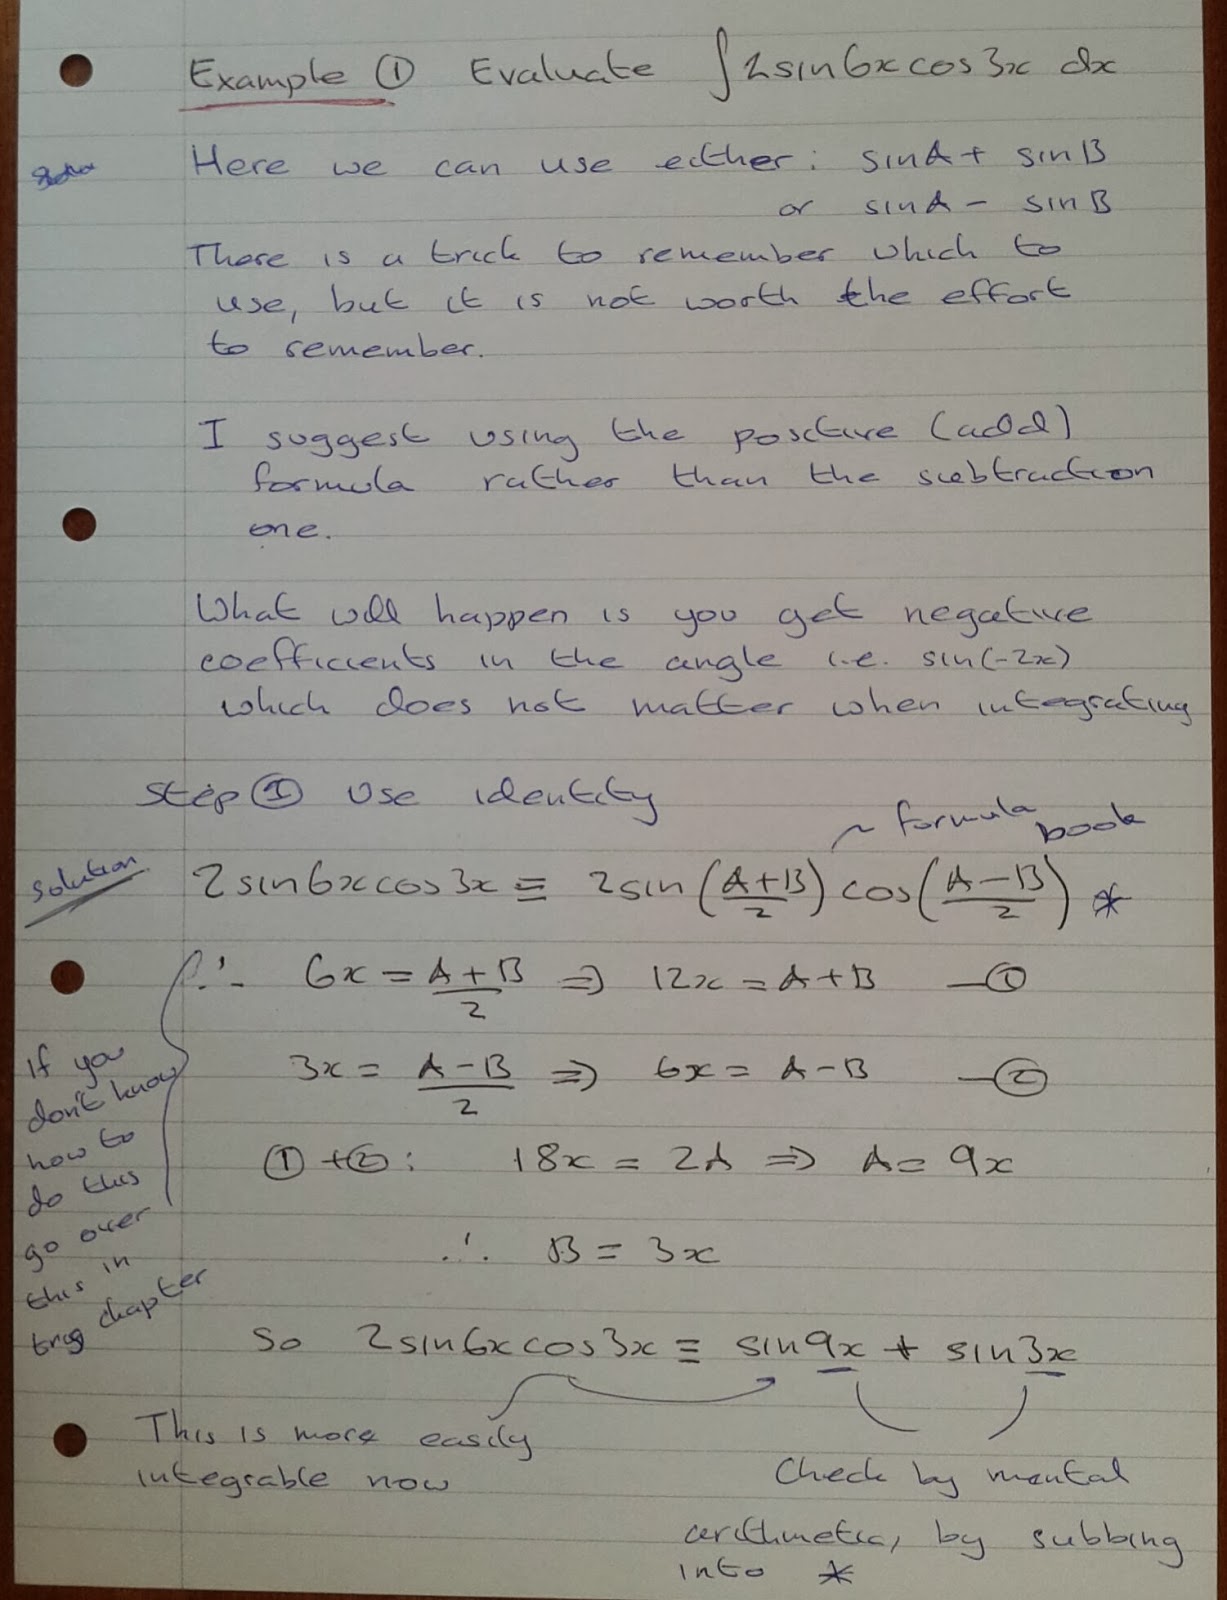 Example ① Evaluate ∫2sin6xcos3x dx
Here we can use either: sinA + sinB
or sinA - sinB
There is a trick to remember which to
use, but it is not worth the effort
to remember.
I suggest using the positive (add)
formula rather than the subtraction
one.
What will happen is you get negative
coefficients in the angle i.e. sin(-2x)
which does not matter when integrating
Step ① Use identity
~ formula book
solution
2sin6xcos3x ≡ 2sin(A+B/2)cos(A-B/2) *
∴ 6x = A+B/2 ⇒ 12x = A+B —①
3x = A-B/2 ⇒ 6x = A-B —②
①+②: 18x = 2A ⇒ A = 9x
∴ B = 3x
If you
don't know
how to
do this
go over
this in
trig chapter
So 2sin6xcos3x ≡ sin9x + sin3x
This is more easily
integrable now
Check by mental
arithmetic, by subbing
into *